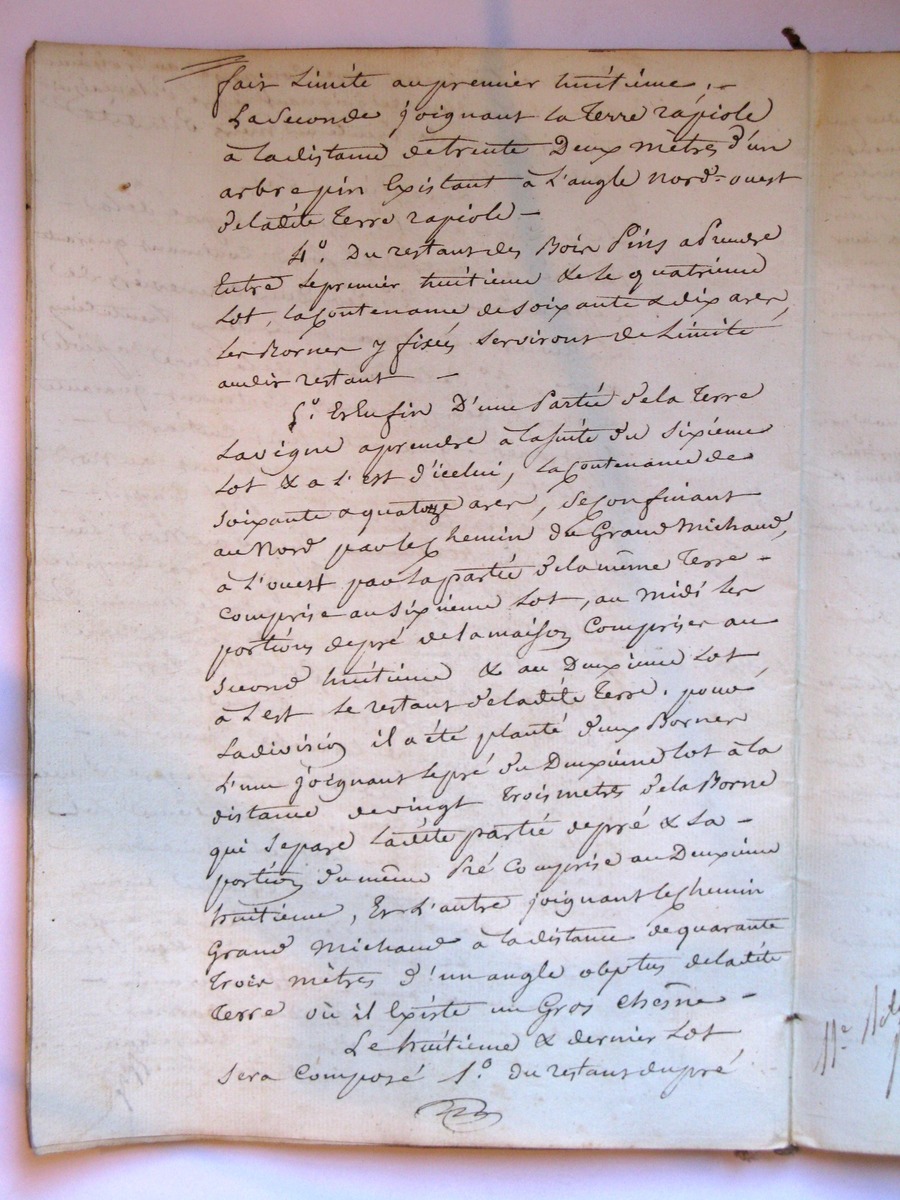 fait Limite au premier huitième ;-
La Seconde joignant la Terre rapiole
à la distance de trente Deux mètres d'un
arbre pin Existant à L'angle Nord-ouest
de la dite Terre rapiole -
4o. Du restant des Bois Pins a Prendre
Entre le premier huitième & le quatrieme
Lot, la Contenance de soixante & dix ares,
les Bornes y fixées Serviront de Limite
au dit restant -
5o. Et Enfin D'une Partie de la Terre
La vigne a prendre à la suite du sixieme
Lot & a L'est d'icelui, la Contenance de
Soixante & quatorze ares, se Confinant
au Nord par le Chemin du Grand Michaud,
à L'ouest par la partie de la même Terre -
Comprise au sixieme Lot, au Midi les
portions de pré de la maison Comprises au
second huitième & au Deuxieme Lot,
à L'est le restant de la dite Terre. pour
La division il a été planté deux Bornes
L'une joignant le pré du Deuxieme lot à la
distance de vingt trois metres de la Borne
qui Separe La dite partie de pré & La -
portion du même Pré Comprise au Deuxieme
huitième, Et L'autre joignant le Chemin
Grand Michaud à la distance de quarante
Trois mètres d'un angle obptus de la dite
Terre où il Existe un Gros chesne -
Le huitieme & dernier Lot
Sera Composé 1o. du restant du pré